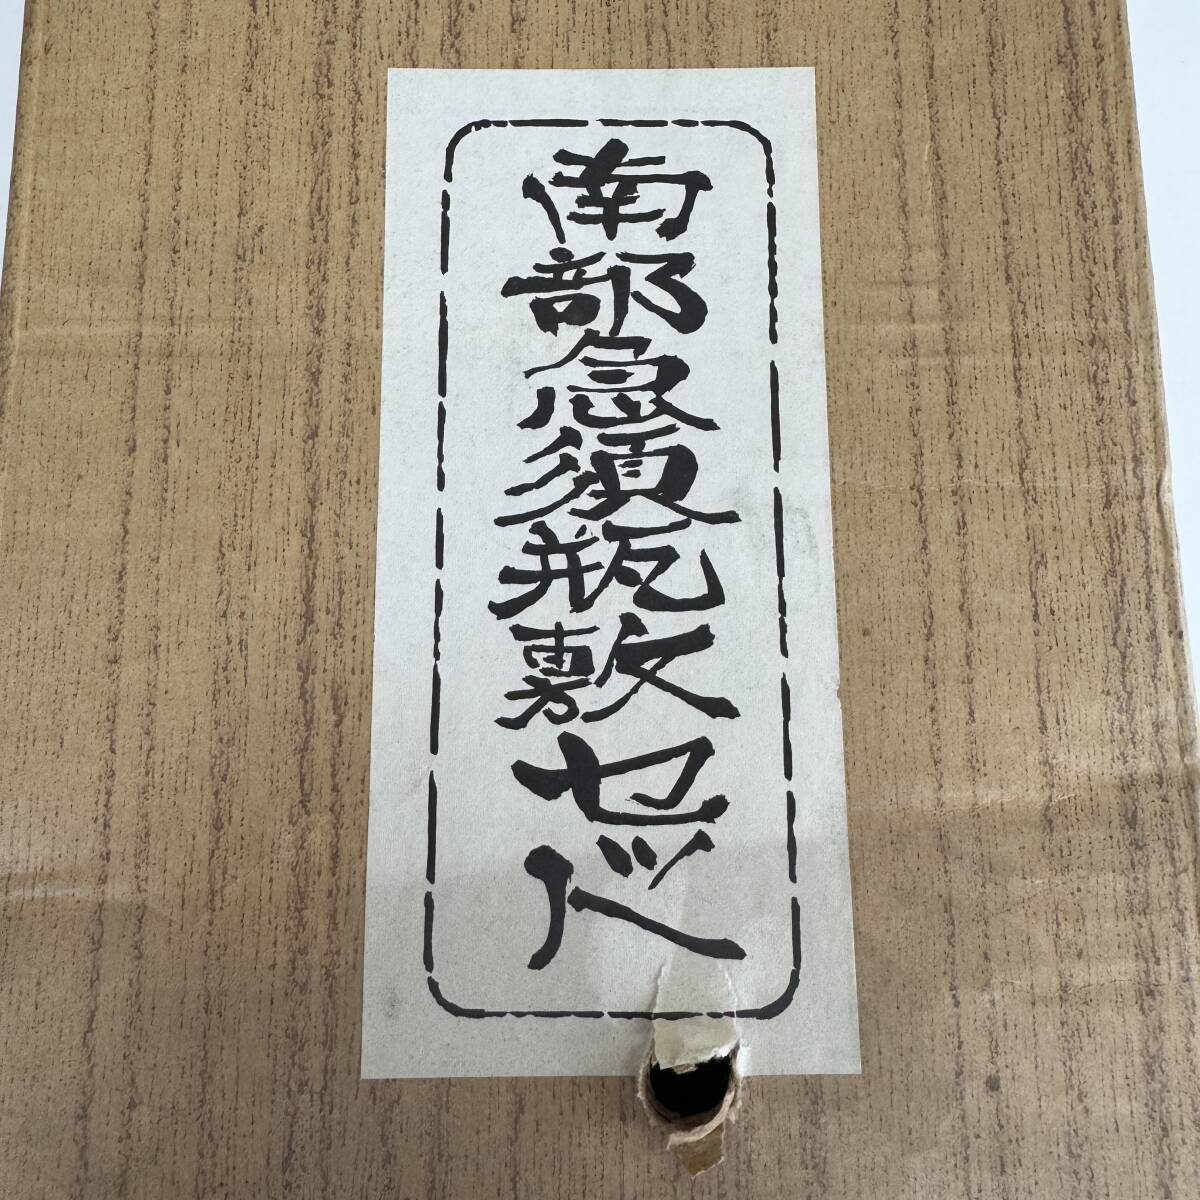 南部急須瓶敷セット